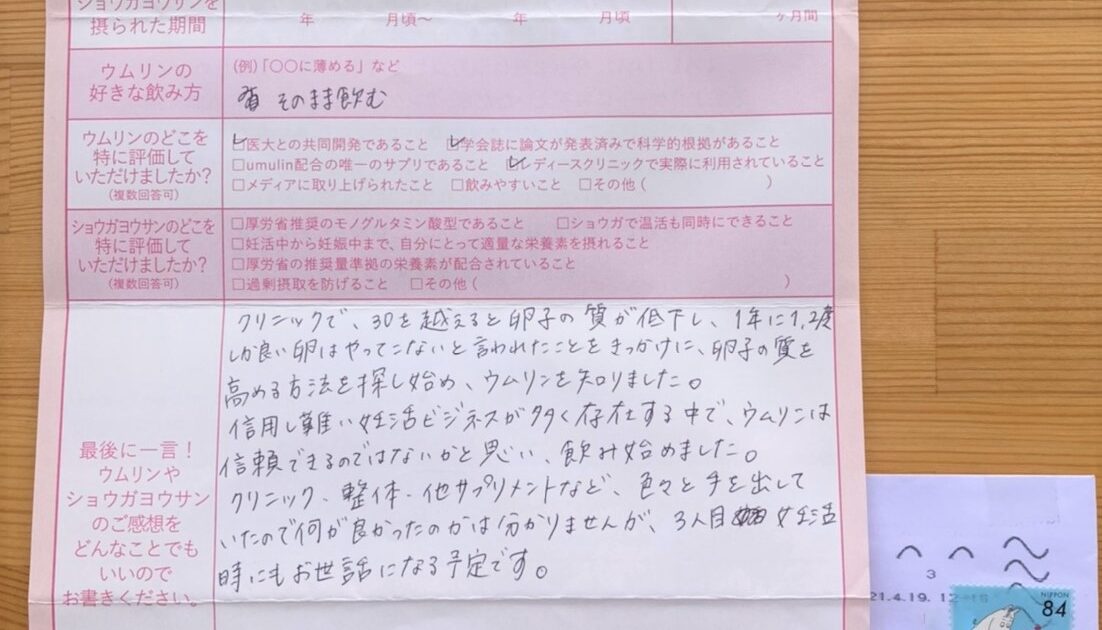 ショウガヨウサンを
摂られた期間
年 月頃～ 年 月頃 ヶ月間
ウムリンの
好きな飲み方
(例)「〇〇に薄める」など
そのまま飲む
ウムリンのどこを
特に評価して
いただけましたか?
(複数回答可)
医大との共同開発であること 学会誌に論文が発表済みで科学的根拠があること
□umulin配合の唯一のサプリであること レディースクリニックで実際に利用されていること
□メディアに取り上げられたこと □飲みやすいこと □その他( )
ショウガヨウサンのどこを
特に評価して
いただけましたか?
(複数回答可)
□厚労省推奨のモノグルタミン酸型であること □ショウガで温活も同時にできること
□妊活中から妊娠中まで、自分にとって適量な栄養素を摂れること
□厚労省の推奨量準拠の栄養素が配合されていること
□過剰摂取を防げること □その他( )
最後に一言!
ウムリンや
ショウガヨウサン
のご感想を
どんなことでも
いいので
お書きください。
クリニックで、30を越えると卵子の質が低下し、1年に1,2度
しか良い卵はやってこないと言われたことをきっかけに、卵子の質を
高める方法を探し始め、ウムリンを知りました。
信用し難い妊活ビジネスが多く存在する中で、ウムリンは
信頼できるのではないかと思い、飲み始めました。
クリニック・整体・他サプリメントなど、色々と手を出して
いたので何が良かったのかは分かりませんが、3人目妊活
時にもお世話になる予定です。
3
21.4.19. 12-18
NIPPON
84